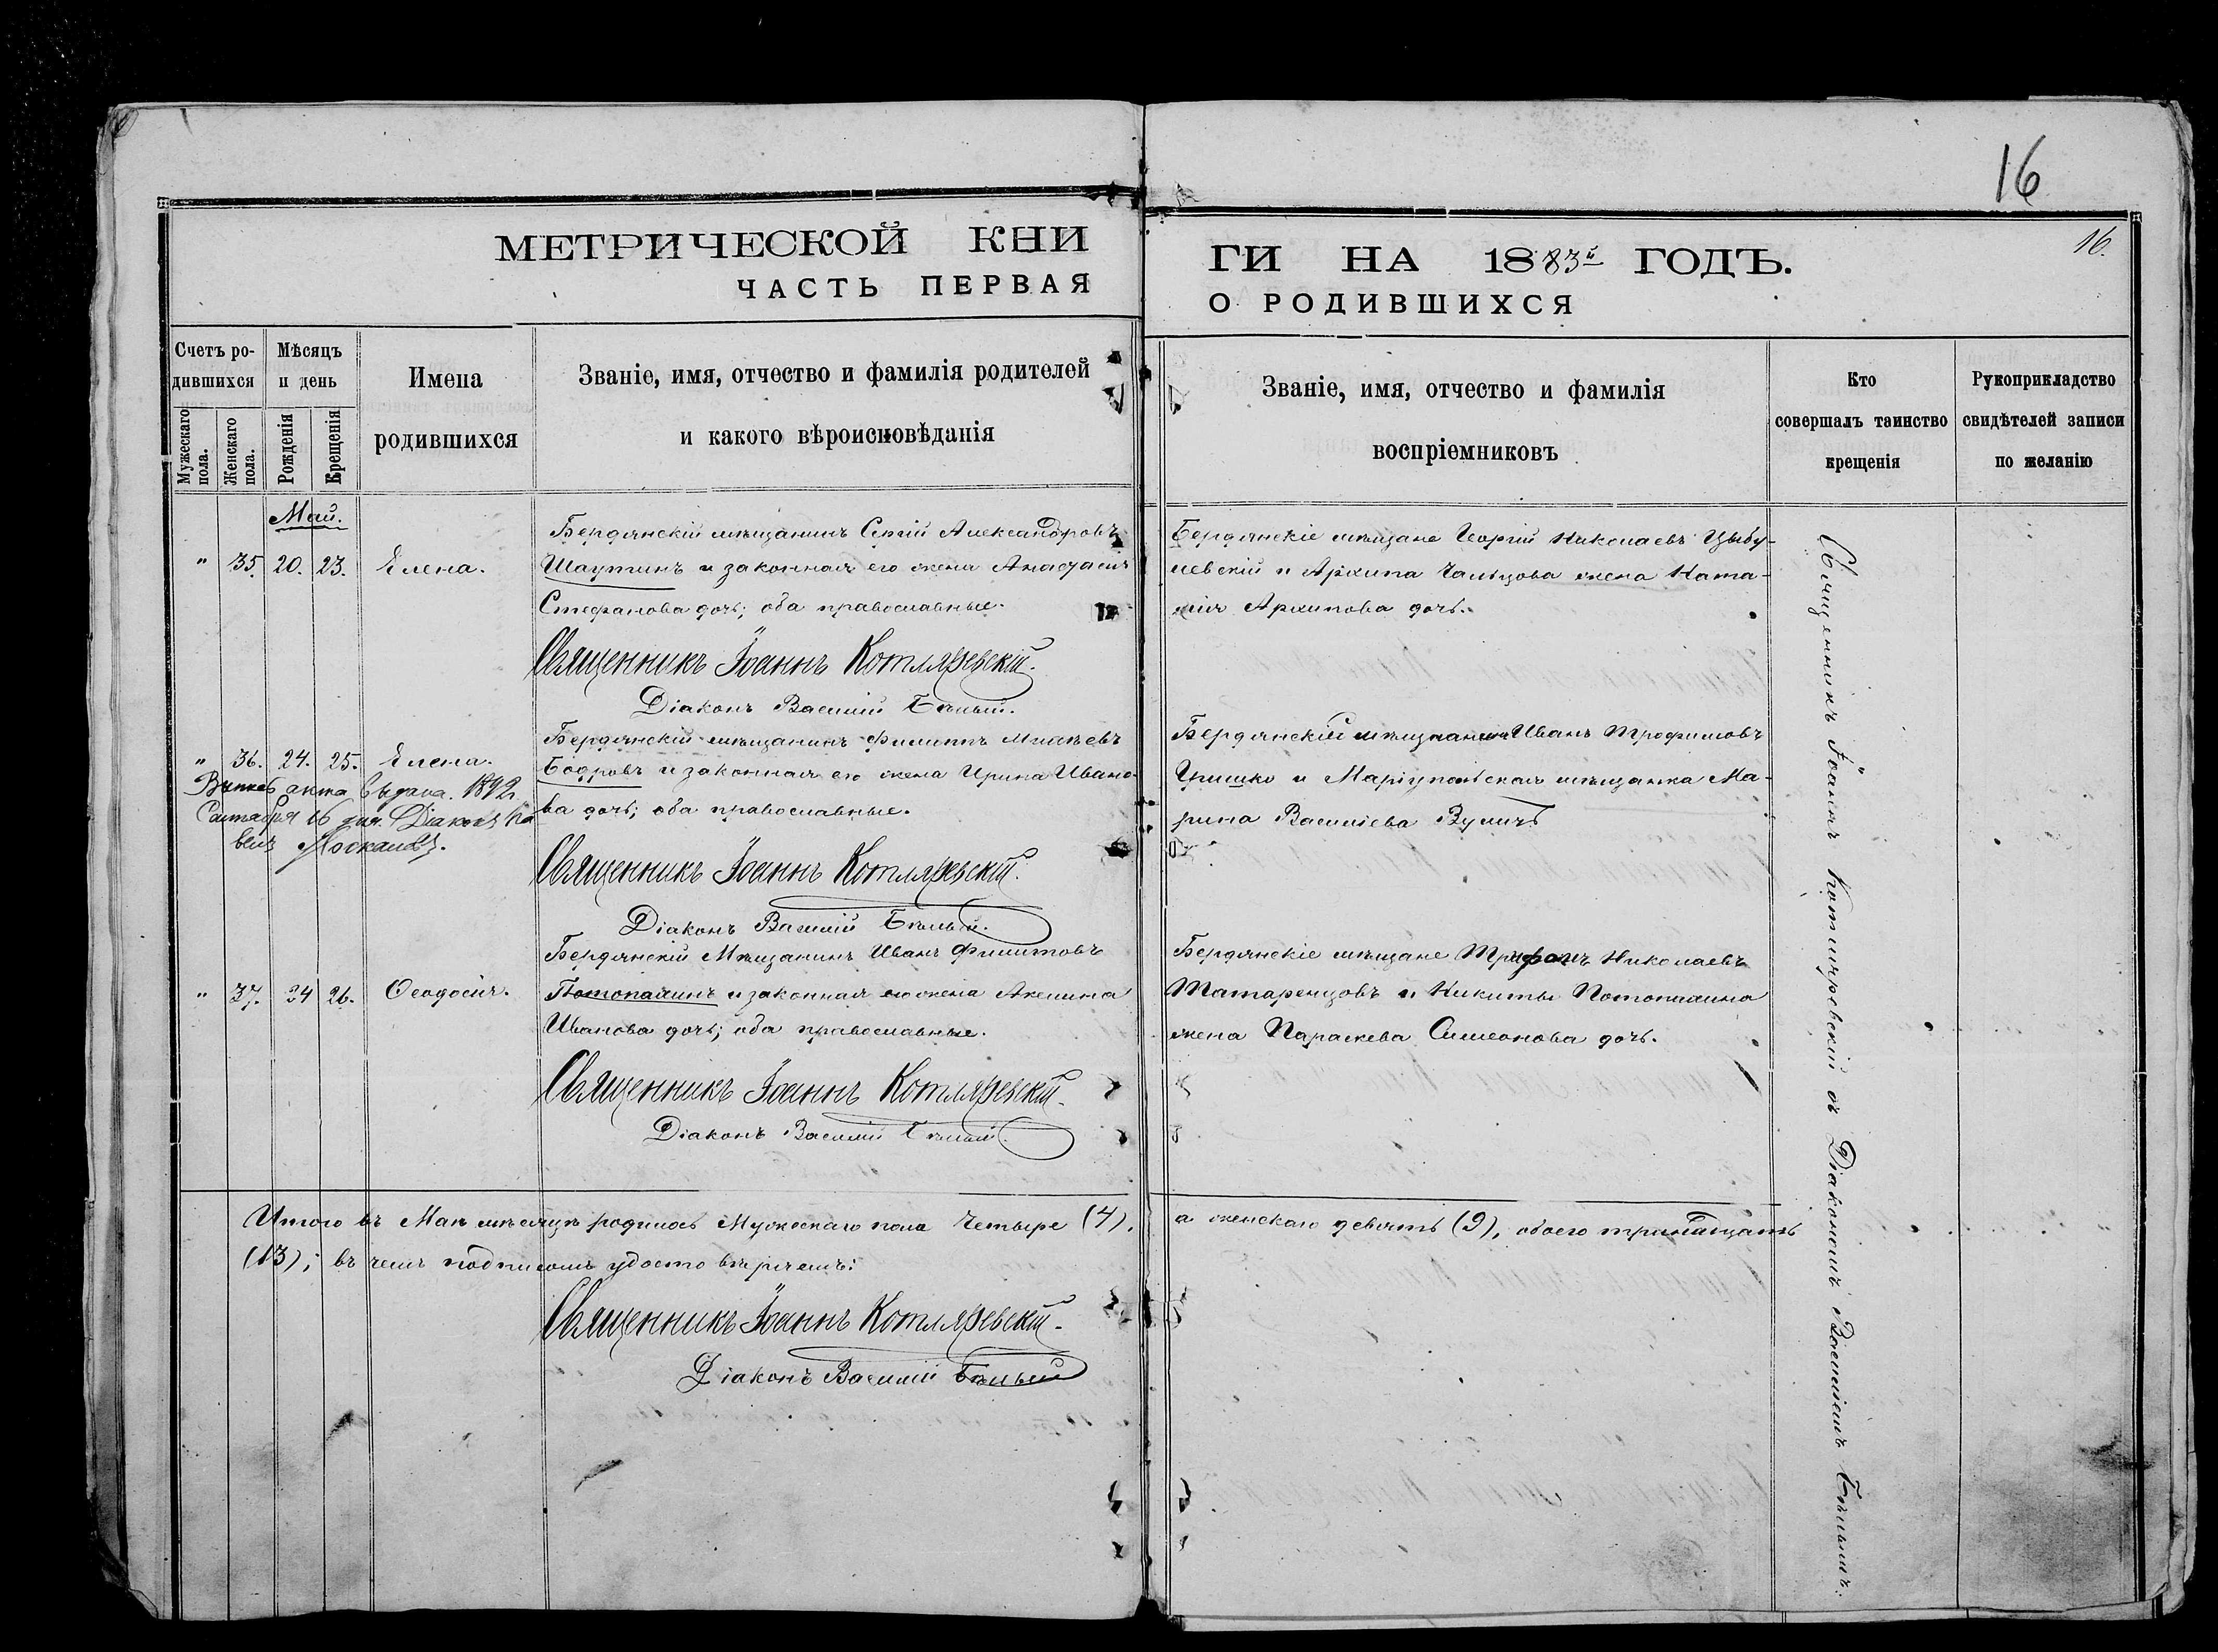 16
МЕТРИЧЕСКОЙ КНИ
ГИ НА 1883й ГОДЪ.
16.
ЧАСТЬ ПЕРВАЯ
О РОДИВШИХСЯ
Счетъ ро-
дившихся
Мужескаго
пола.
Женскаго
пола.
Мѣсяцъ
и день
Рожденія
Крещенія
Имена
родившихся
Званіе, имя, отчество и фамилія родителей
и какого вѣроисповѣданія
Званіе, имя, отчество и фамилія
воспріемниковъ
Кто
совершалъ таинство
крещенія
Рукоприкладство
свидѣтелей записи
по желанію
Май.
" 35. 20. 23. Елена.
Бердянскій мѣщанинъ Сергій Александровъ
Шаутинъ и законная его жена Анастасія
Стефанова дочь; оба православные.
Священникъ Іоаннъ Котляревскій.
Діаконъ Василій Бѣлый.
Бердянскіе мѣщане Георгій Николаевъ Цыбу-
левскій и Архипа жена Ната-
лія Архипова дочь.
" 36. 24. 25. Елена.
Выпись акта выдана. 1892
Сентября 16 дня. Діаконъ Па
велъ
Бердянскій мѣщанинъ Филиппъ Михѣевъ
Бодровъ и законная его жена Ирина Ивано-
ва дочь; оба православные.
Священникъ Іоаннъ Котляревскій.
Діаконъ Василій Бѣлый.
Бердянскій мѣщанинъ Иванъ Трофимовъ
Гришко и Маріупольская мѣщанка Ма-
рина Василіева Вуличъ
" 37. 24 26. Ѳеодосія.
Бердянскій Мѣщанинъ Иванъ Филиповъ
Потопахинъ и законная его жена Акелина
Иванова дочь; оба православные.
Священникъ Іоаннъ Котляревскій.
Діаконъ Василій Бѣлый.
Бердянскіе мѣщане Трифонъ Николаевъ
Татаренцовъ и Никиты Потопахина
жена Параскева Симеонова дочь.
Священникъ Іоаннъ Котляревскій съ Діакономъ Василіемъ Бѣлымъ.
Итого въ Маѣ мѣсяцѣ родилось Мужескаго пола Четыре (4),
а женскаго девять (9), обоего тринадцать
(13); въ чемъ подписомъ удостовѣряемъ:
Священникъ Іоаннъ Котляревскій.
Діаконъ Василій Бѣлый